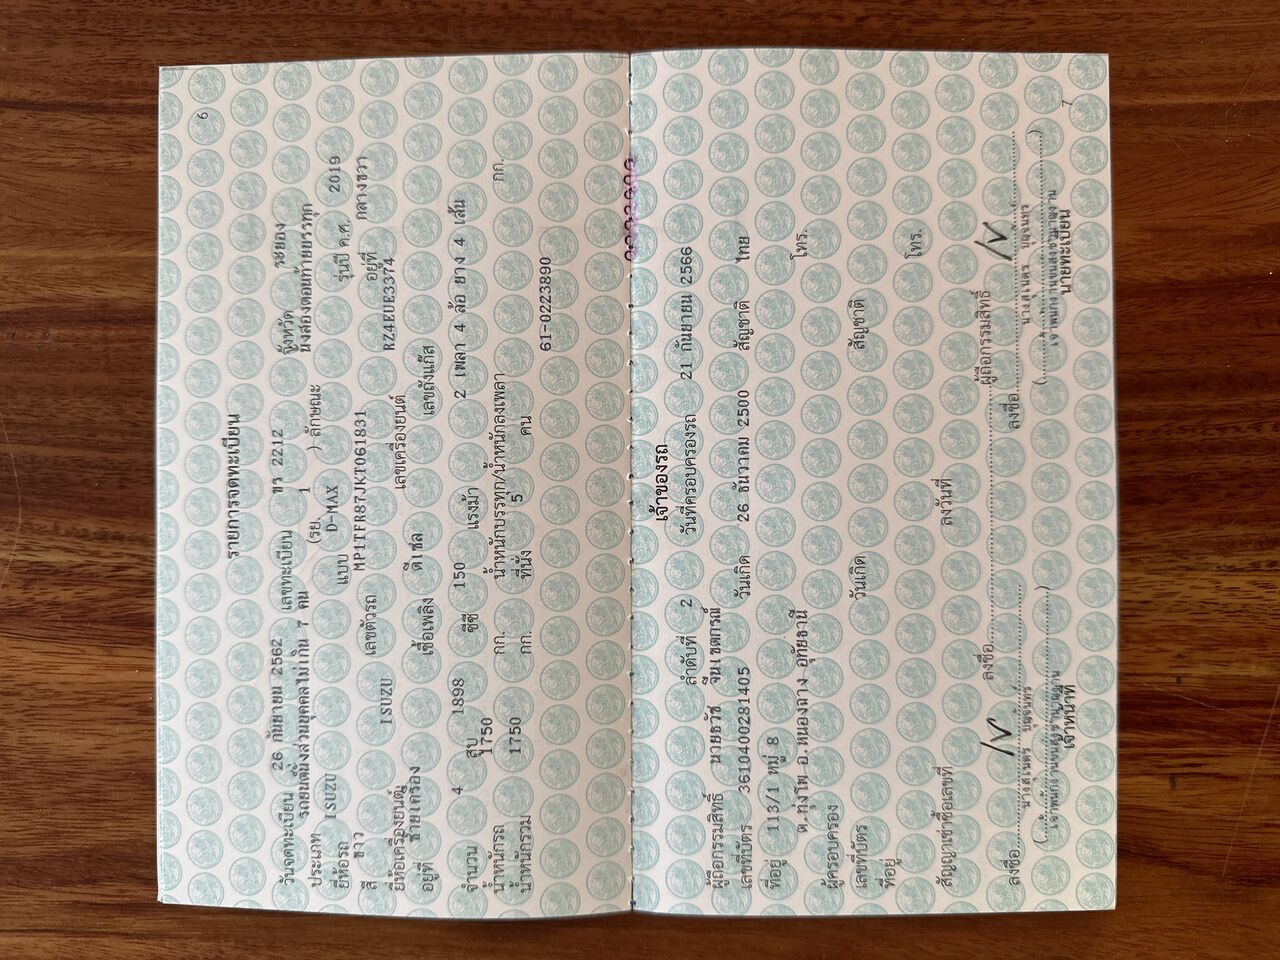 6
รายการจดทะเบียน
วันจดทะเบียน 26 กันยายน 2562 เลขทะเบียน ขร 2212 จังหวัด ระยอง
ประเภท รถยนต์นั่งส่วนบุคคลไม่เกิน 7 คน (รย. 1 ) ลักษณะ นั่งสองตอนท้ายบรรทุก
ยี่ห้อรถ ISUZU แบบ D-MAX รุ่นปี ค.ศ. 2019
สี ขาว เลขตัวรถ MP1TFR87JKT061831 อยู่ที่ กลางขวา
ยี่ห้อเครื่องยนต์ ISUZU เลขเครื่องยนต์ RZ4EUE3374
อยู่ที่ ซ้ายเครื่อง เชื้อเพลิง ดีเซล เลขถังแก๊ส
จำนวน 4 สูบ 1898 ซีซี 150 แรงม้า 2 เพลา 4 ล้อ ยาง 4 เส้น
น้ำหนักรถ 1750 กก. น้ำหนักบรรทุก/น้ำหนักลงเพลา กก.
น้ำหนักรวม 1750 กก. ที่นั่ง 5 คน
61-0223890
เจ้าของรถ
ลำดับที่ 2 วันที่ครอบครองรถ 21 กันยายน 2566
ผู้ถือกรรมสิทธิ์ นายธวัช จีนเขตกรณ์
เลขที่บัตร 3610400281405 วันเกิด 26 ธันวาคม 2500 สัญชาติ ไทย
ที่อยู่ 113/1 หมู่ 8 โทร.
ต.ทุ่งโพ อ.หนองฉาง อุทัยธานี
ผู้ครอบครอง
เลขที่บัตร วันเกิด สัญชาติ
ที่อยู่ โทร.
สัญญาเช่าซื้อเลขที่ ลงวันที่
ลงชื่อ ผู้ถือกรรมสิทธิ์
ลงชื่อ ลงชื่อ
เจ้าพนักงานขนส่งชำนาญงาน เจ้าพนักงานขนส่งชำนาญงาน
เจ้าหน้าที่ นายทะเบียน
7